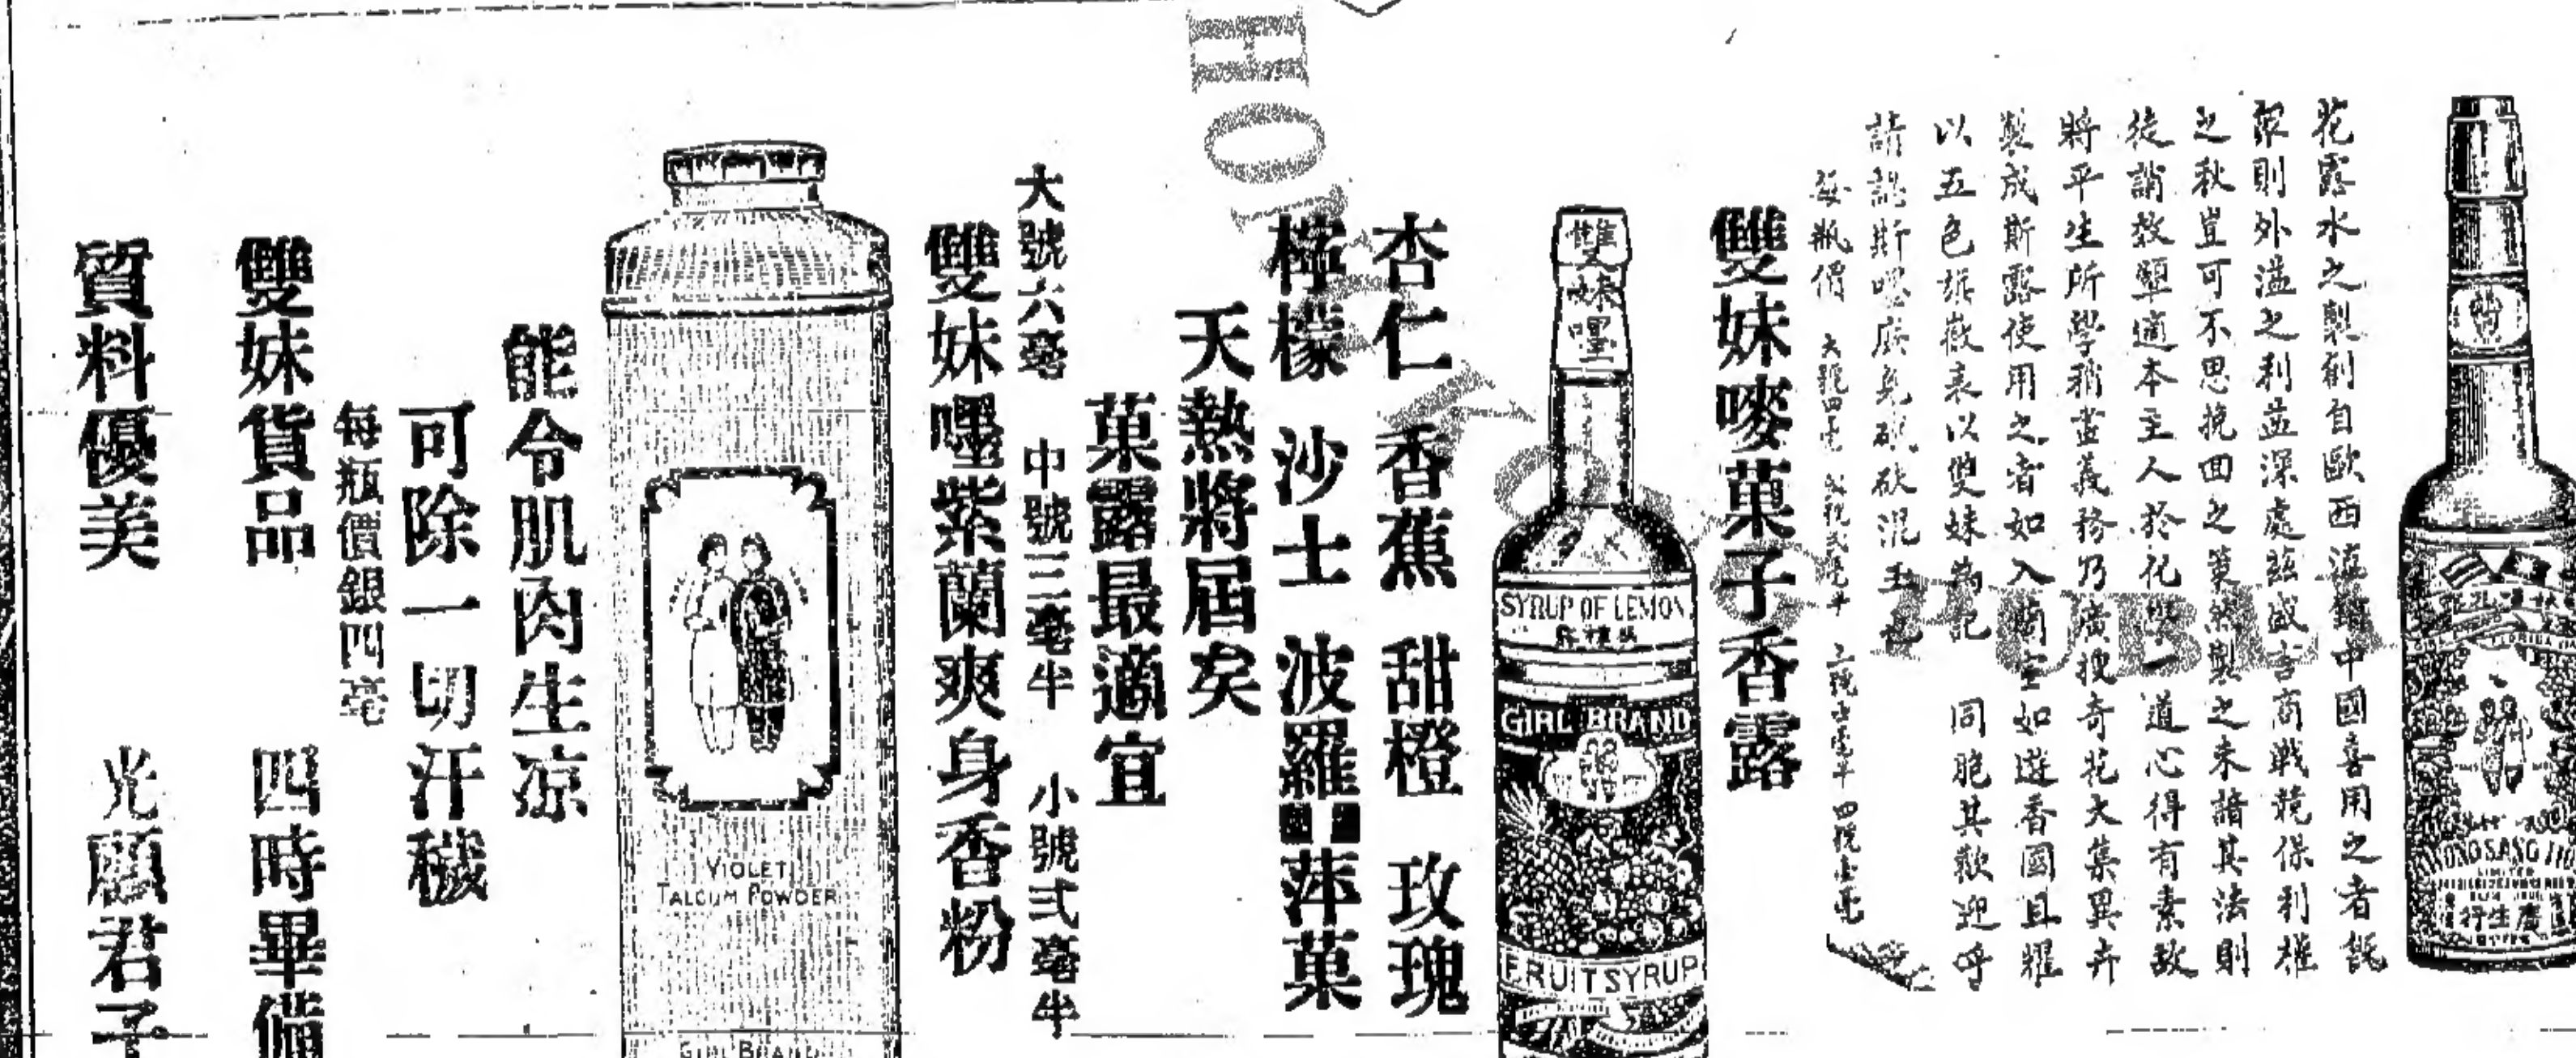 花露水之製創自歐西滙銷中國喜用之者既
眾則外溢之利益深處茲盛言商戰競保利權
之秋豈可不思挽回之策然製之未諳其法則
徒誚效顰適本主人於化學一道心得有素故
將平生所學稍盡義務乃廣搜奇花大集異卉
製成斯露使用之者如入蘭室如遊香國且耀
以五色旗徽表以雙妹為記 同胞其歡迎乎
請認斯嘜庶免砥砆混玉也
每瓶價 大號四毫 二號弍毫半 三號 毫半 四號壹毫
雙妹嘜菓子香露
雙妹嘜
SYRUP OF LEMON
GIRL BRAND
FRUIT SYRUP
杏仁 香蕉 甜橙 玫瑰
檸檬 沙士 波羅 萍菓
天熱將屆矣
菓露最適宜
大號六毫 中號三毫半 小號弍毫半
雙妹嘜紫蘭爽身香粉
VIOLET
TALCUM POWDER
GIRL BRAND
能令肌肉生凉
可除一切汗穢
每瓶價銀四毫
雙妹貨品 四時畢備
質料優美 光顧君子
KWONG SANG HONG
LIMITED
廣生行